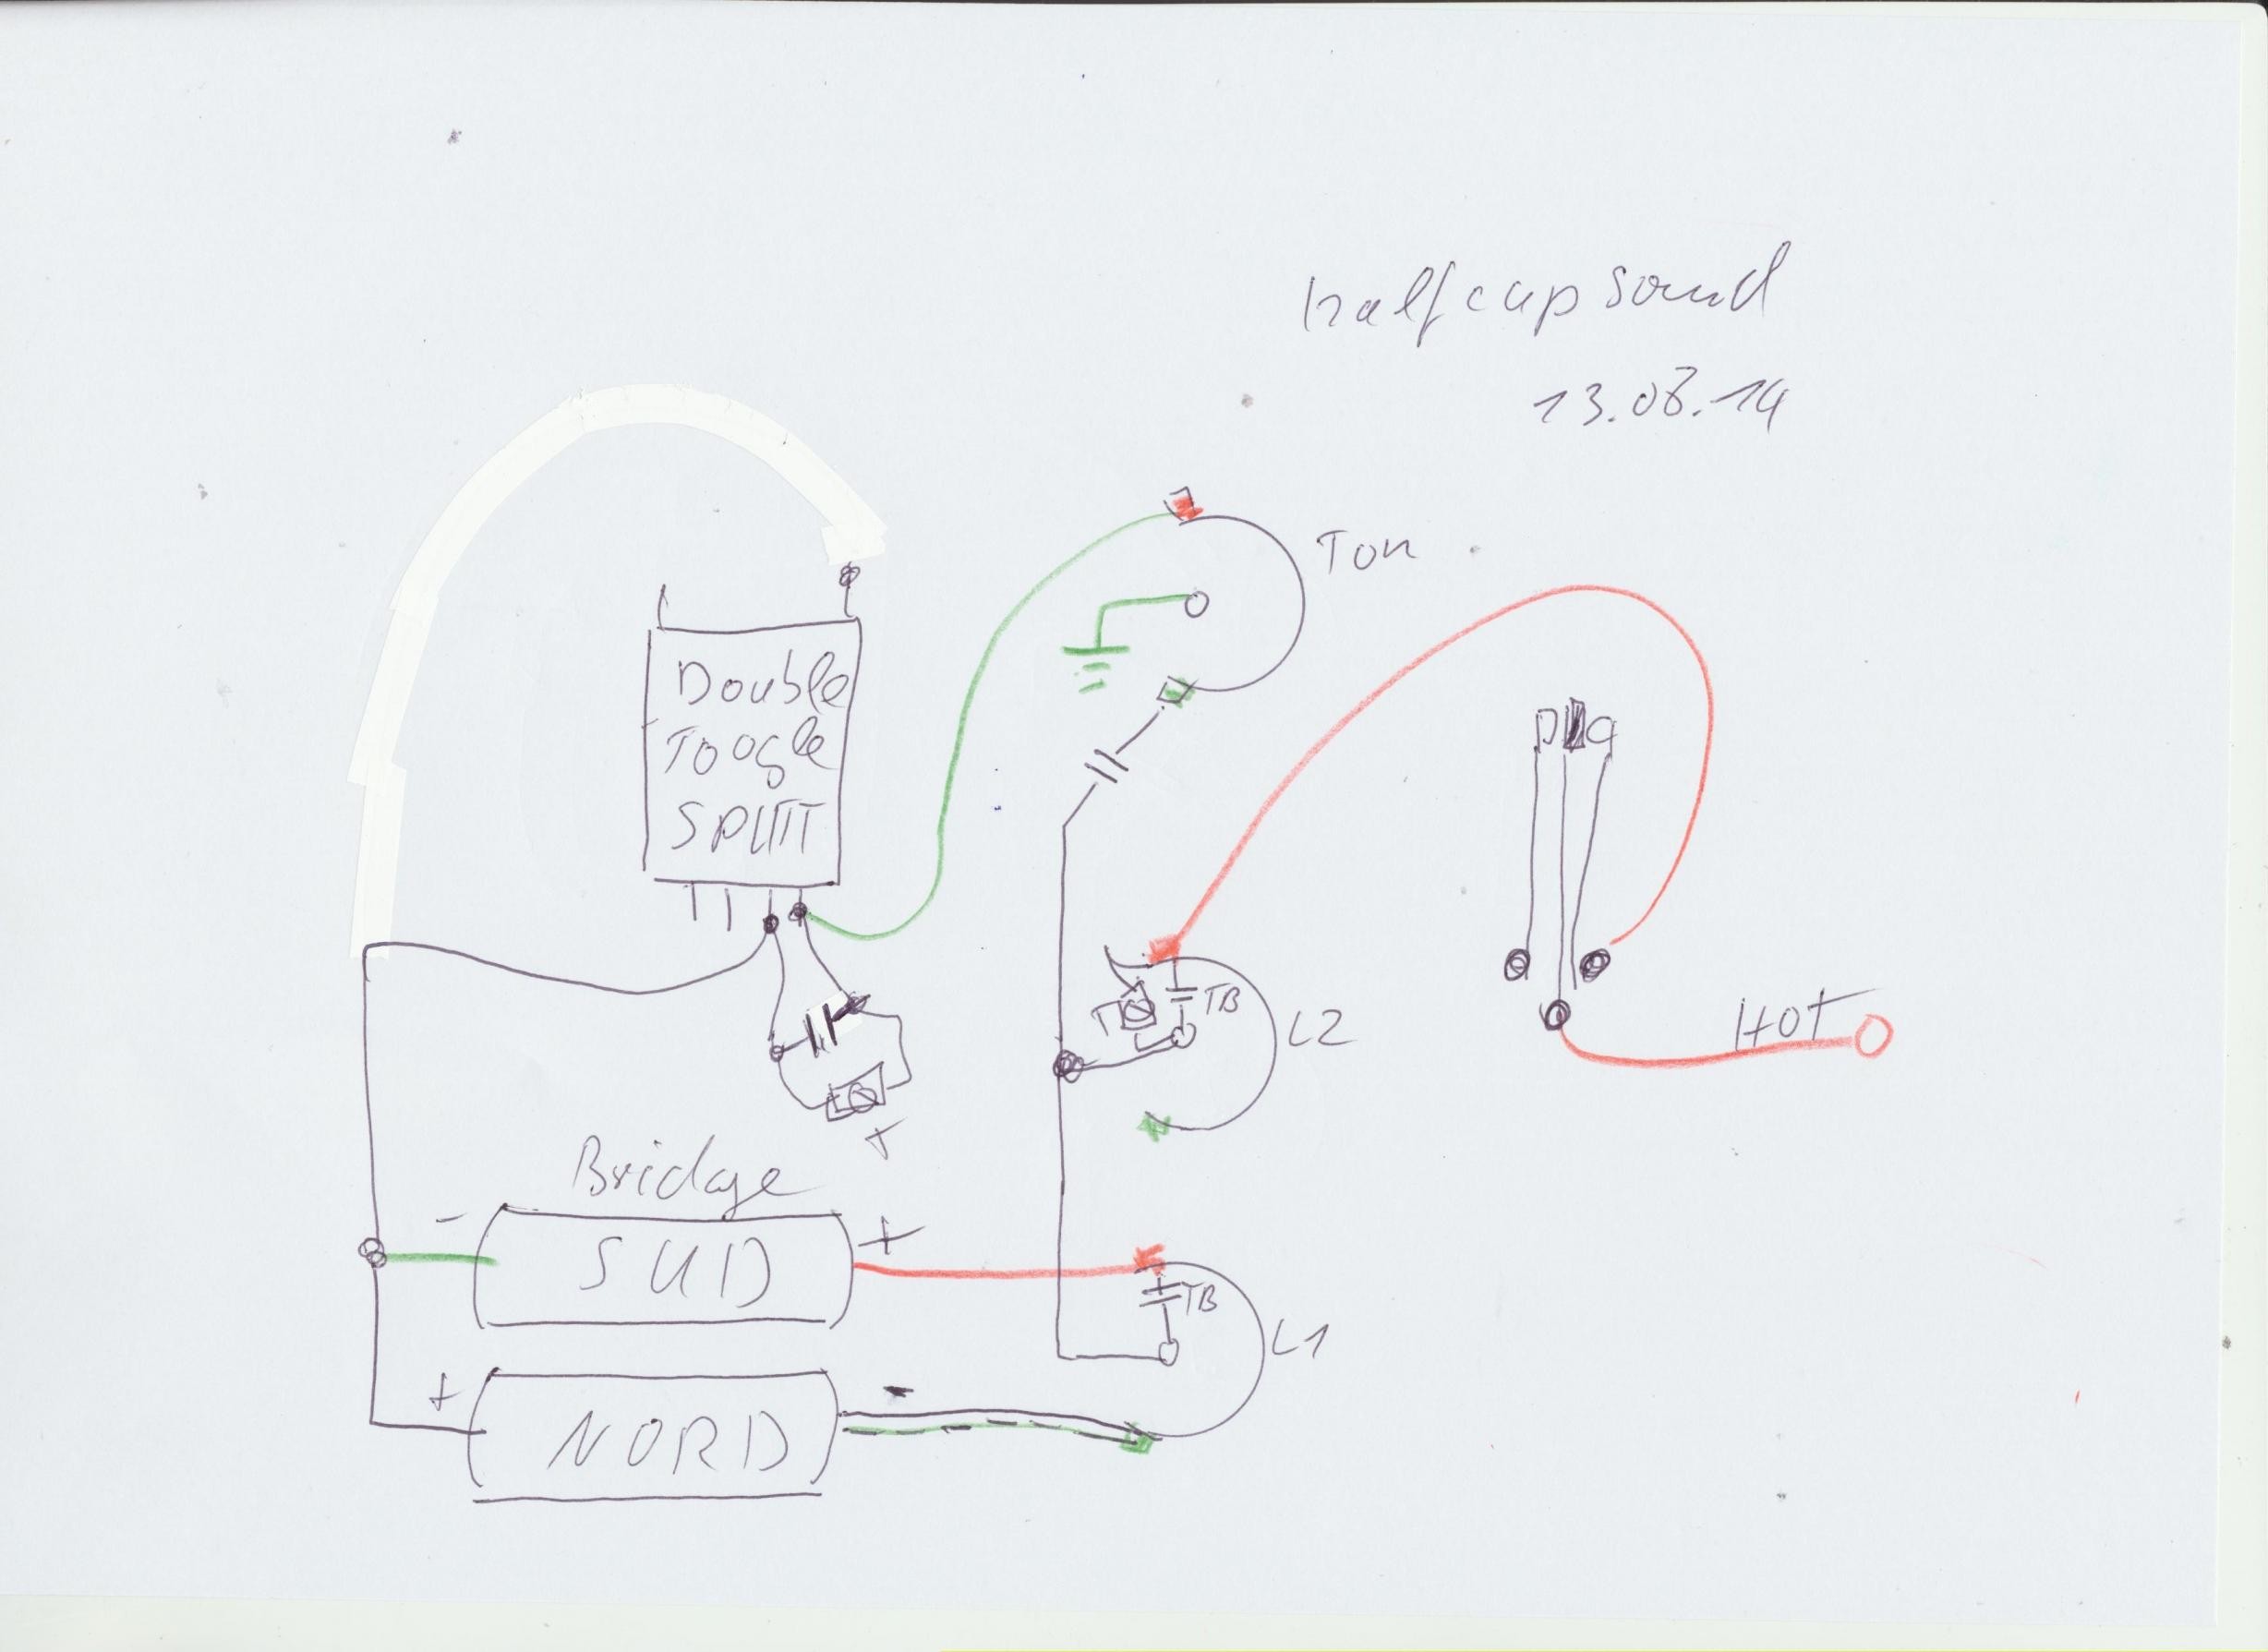 halfcap sound
13.08.14
Ton
Double
Toogle
SPLITT
TB
L2
HOT
T
Bridge
-
+
SUD
TB
L1
+
-
NORD